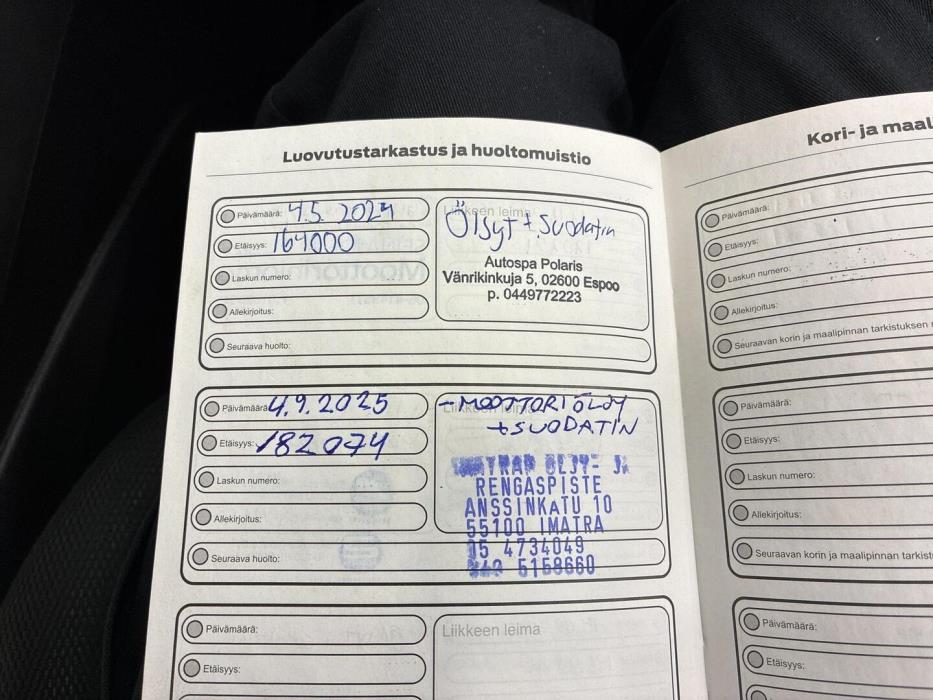 Luovutustarkastus ja huoltomuistio
Päivämäärä: 4.5. 2024
Etäisyys: 164000
Laskun numero:
Allekirjoitus:
Seuraava huolto:
Liikkeen leima
Ölsyt + suodatin
Autospa Polaris
Vänrikinkuja 5, 02600 Espoo
p. 0449772223
Päivämäärä: 4.9.2025
Etäisyys: 182074
Laskun numero:
Allekirjoitus:
Seuraava huolto:
Liikkeen leima
- MOOTTORIÖLJY
+SUODATIN
RENGASPISTE
ANSSINKATU 10
55100 IMATRA
05 4734049
5158660
Päivämäärä:
Etäisyys:
Liikkeen leima
Kori- ja
Päivämäärä:
Etäisyys:
Laskun numero:
Allekirjoitus:
Seuraavan korin ja maalipinnan tarkistuksen
Päivämäärä:
Etäisyys:
Laskun numero:
Allekirjoitus:
Seuraavan korin ja maalipinnan
Päivämäärä:
Etäisyys: